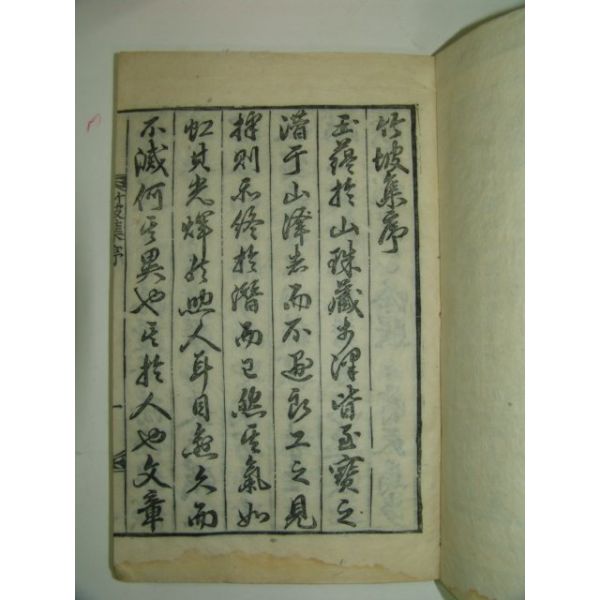 竹坡集序
玉蘊於山珠藏於澤皆至寶之
潛于山澤者而不遇良工之見
採則不終於潛而已然其氣如
虹其光輝於照人耳目愈久而
不滅何其異也其於人也文章
竹坡集序
一